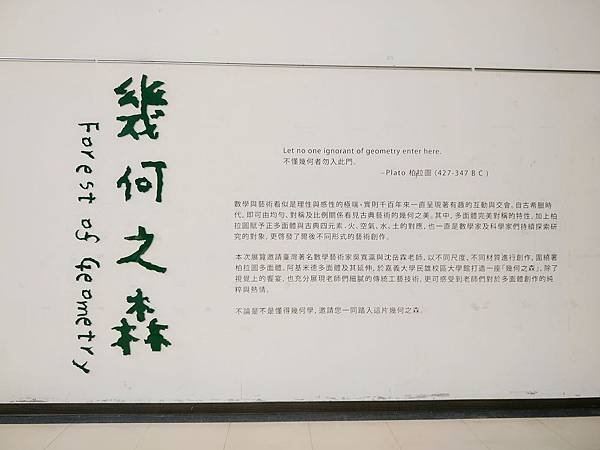 幾何之森
Forest of Geometry
Let no one ignorant of geometry enter here.
不懂幾何者勿入此門。
–Plato 柏拉圖 (427-347 B C )
數學與藝術看似是理性與感性的極端，實則千百年來一直呈現著有趣的互動與交會。自古希臘時
代，即可由均勻、對稱及比例關係看見古典藝術的幾何之美。其中，多面體完美對稱的特性，加上柏
拉圖賦予正多面體與古典四元素-火、空氣、水、土的對應，也一直是數學家及科學家們持續探索研
究的對象，更啓發了爾後不同形式的藝術創作。
本次展覽邀請臺灣著名數學藝術家吳寬瀛與沈岳霖老師，以不同尺度、不同材質進行創作，圍繞著
柏拉圖多面體、阿基米德多面體及其延伸，於嘉義大學民雄校區大學館打造一座「幾何之森」，除了
視覺上的饗宴，也充分展現老師們細膩的傳統工藝技術，更可感受到老師們對於多面體創作的純
粹與熱情。
不論是不是懂得幾何學，邀請您一同踏入這片幾何之森。